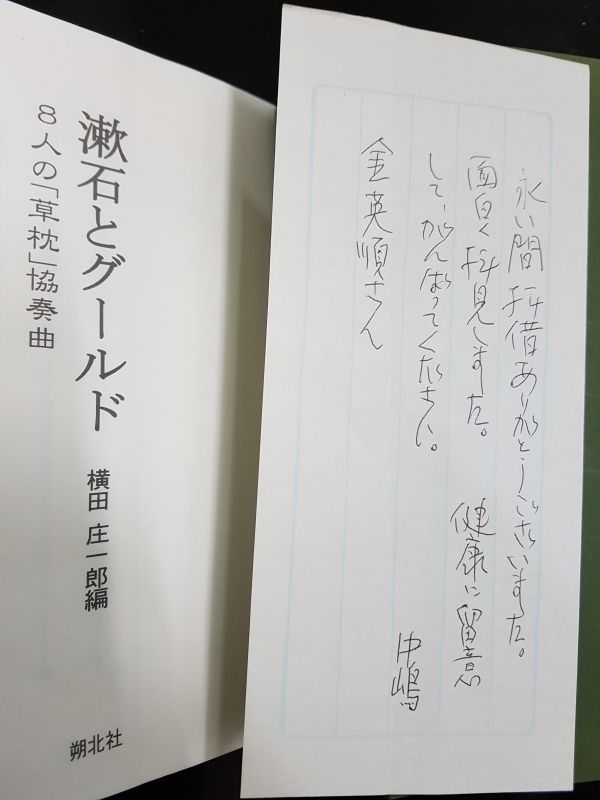 漱石とグールド
8人の「草枕」協奏曲
横田 庄一郎編
朔北社
永い間 拝借ありがとうございました。
面白く拝見しました。 健康に留意
して、がんばってください。
中嶋
金英順さん